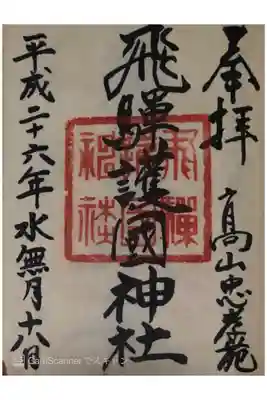 奉拝
高山忠孝苑
飛騨護國神社
飛騨護國神社
平成二十六年水無月十八日
CamScanner でスキャン